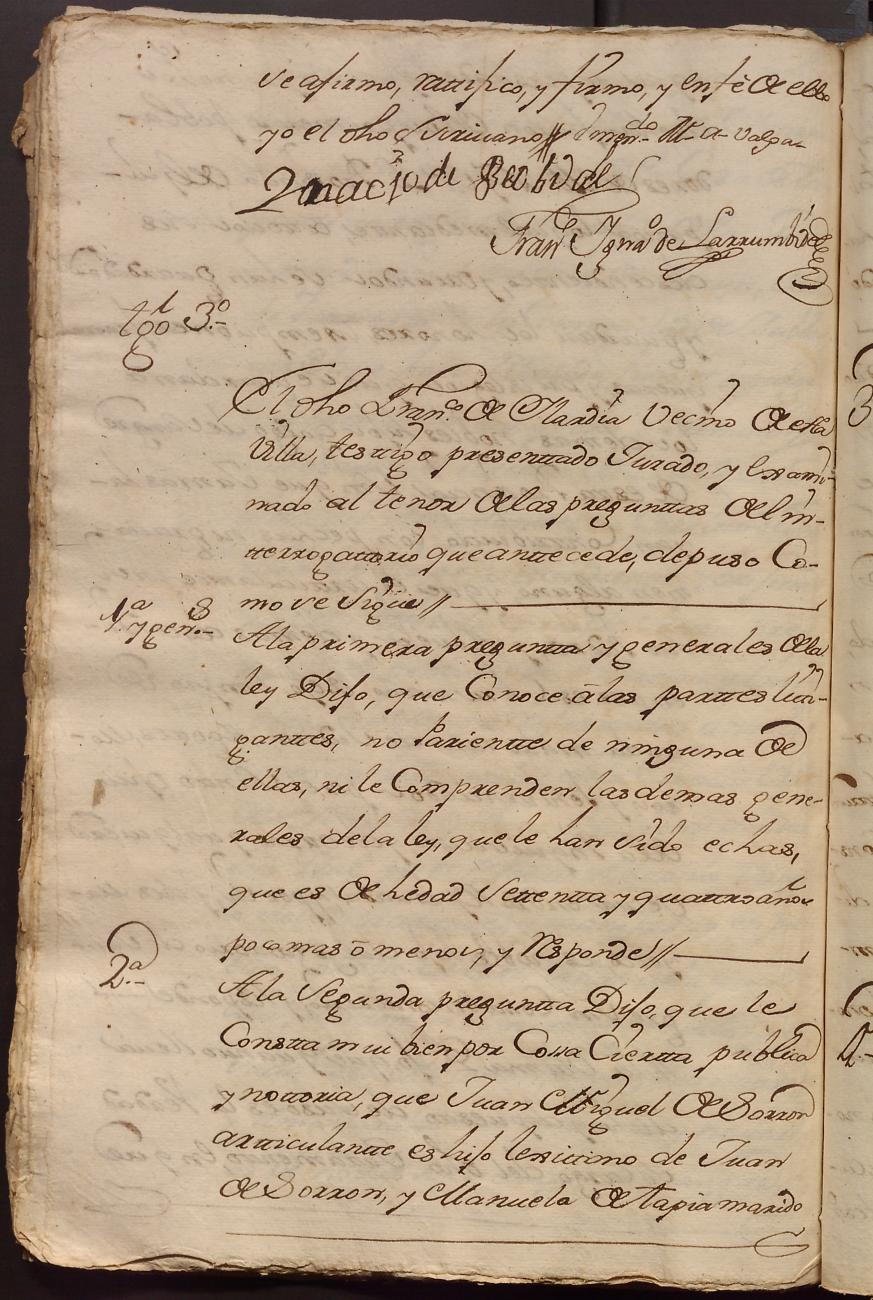 se afirmo, rattifico, y firmo, y en fè de ello
yo el dho Scrivano // Valga
Ygnacio de
Fran.co Ygna.o de Larrumbide
tgo 3.º
El dho Fran.co de Nardia vecino de esta
Villa, testigo presenttado Jurado, y exami-
nado al tenor de las pregunttas del in-
tterrogattorio que anttecede, depuso Co-
mo se sigue //
1.ª y gen.s
A la primera preguntta y generales de la
ley Dijo, que Conoce à las parttes liti-
ganttes, no Parientte de ninguna de
ellas, ni le Comprenden las demas gene-
rales de la ley, que le han sido echas,
que es de hedad Settentta y quattro años
poco mas ò menos, y Responde //
2.ª
A la Segunda preguntta Dijo, que le
Constta mui bien por Cossa Ciertta publica
y nottoria, que Juan Miguel de Sorron
artticulantte es hijo lexittimo de Juan
de Sorron, y Manuela de tapia marido